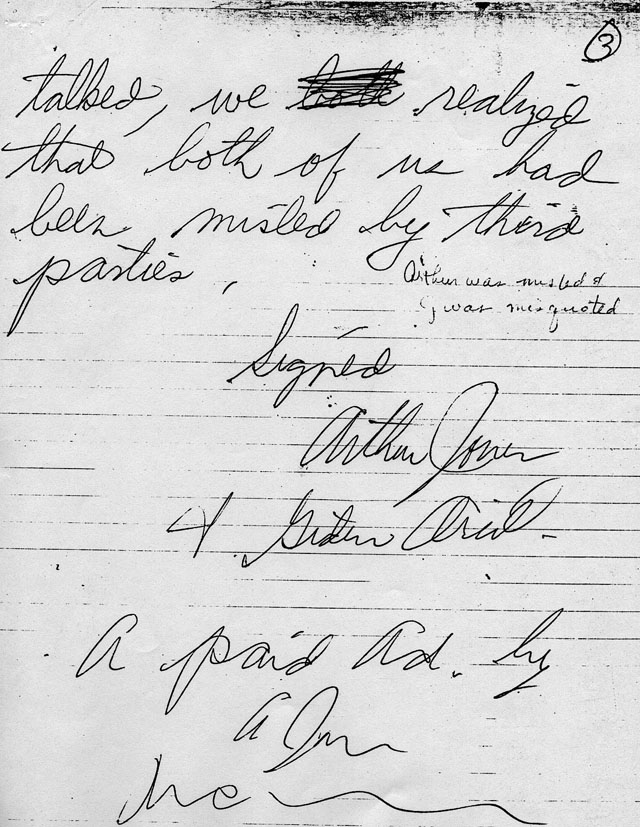 3
talked, we both realized
that both of us had
been misled by third
parties.
Arthur was misled &
I was misquoted
Signed
Arthur Jones
& Gideon Ariel.
A paid Ad. by
A Jones